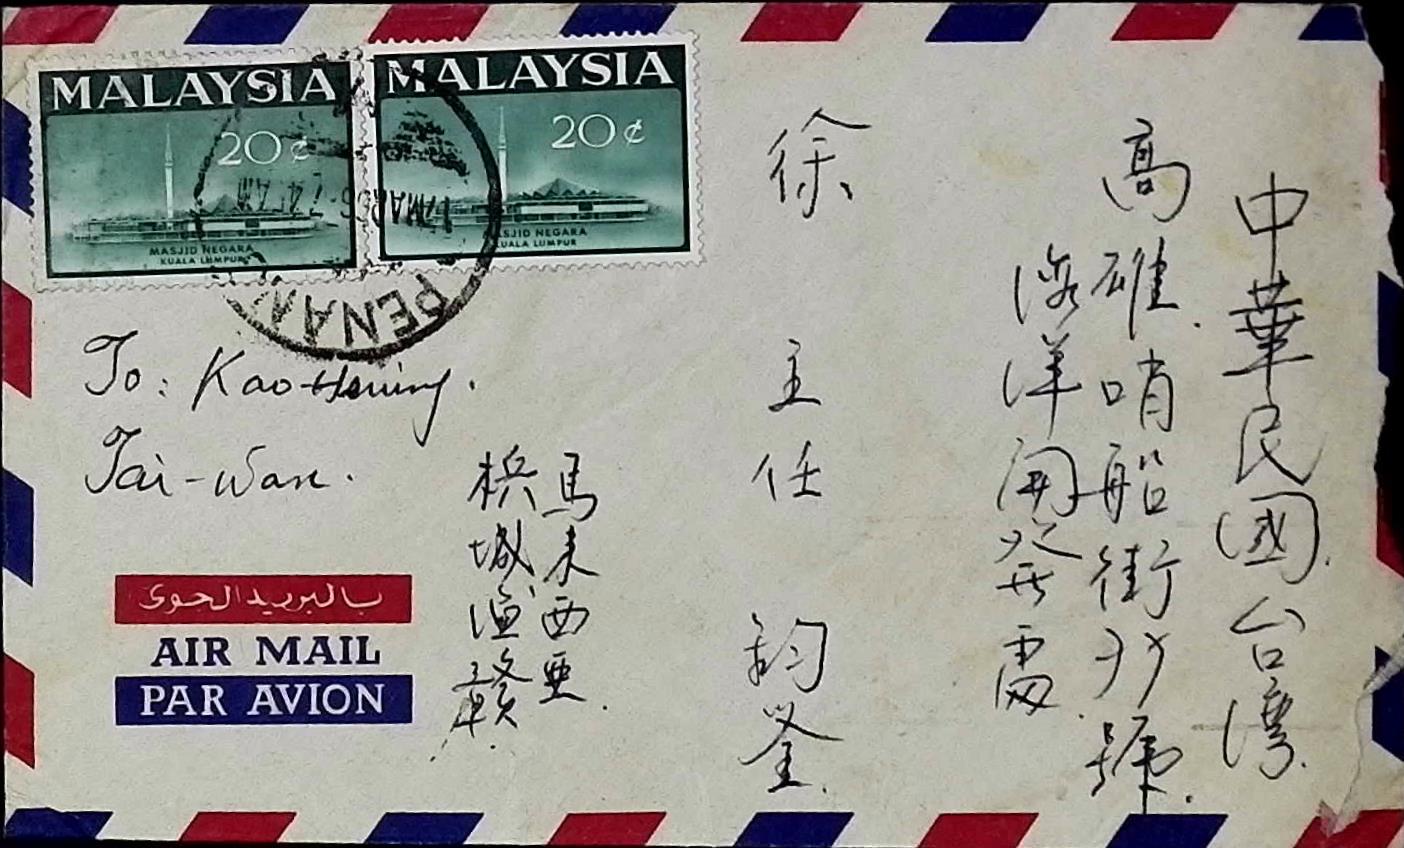 MALAYSIA
20¢
MASJID NEGARA
KUALA LUMPUR
MALAYSIA
20¢
MASJID NEGARA
KUALA LUMPUR
17 MAR 66
PENAN
To: Kao-Hsiung.
Tai-wan.
بالبريد الجوى
AIR MAIL
PAR AVION
中華民國台灣.
高雄哨船街號.
海洋開發處.
徐主任鈞鑒.
馬來西亞.
梹城漁